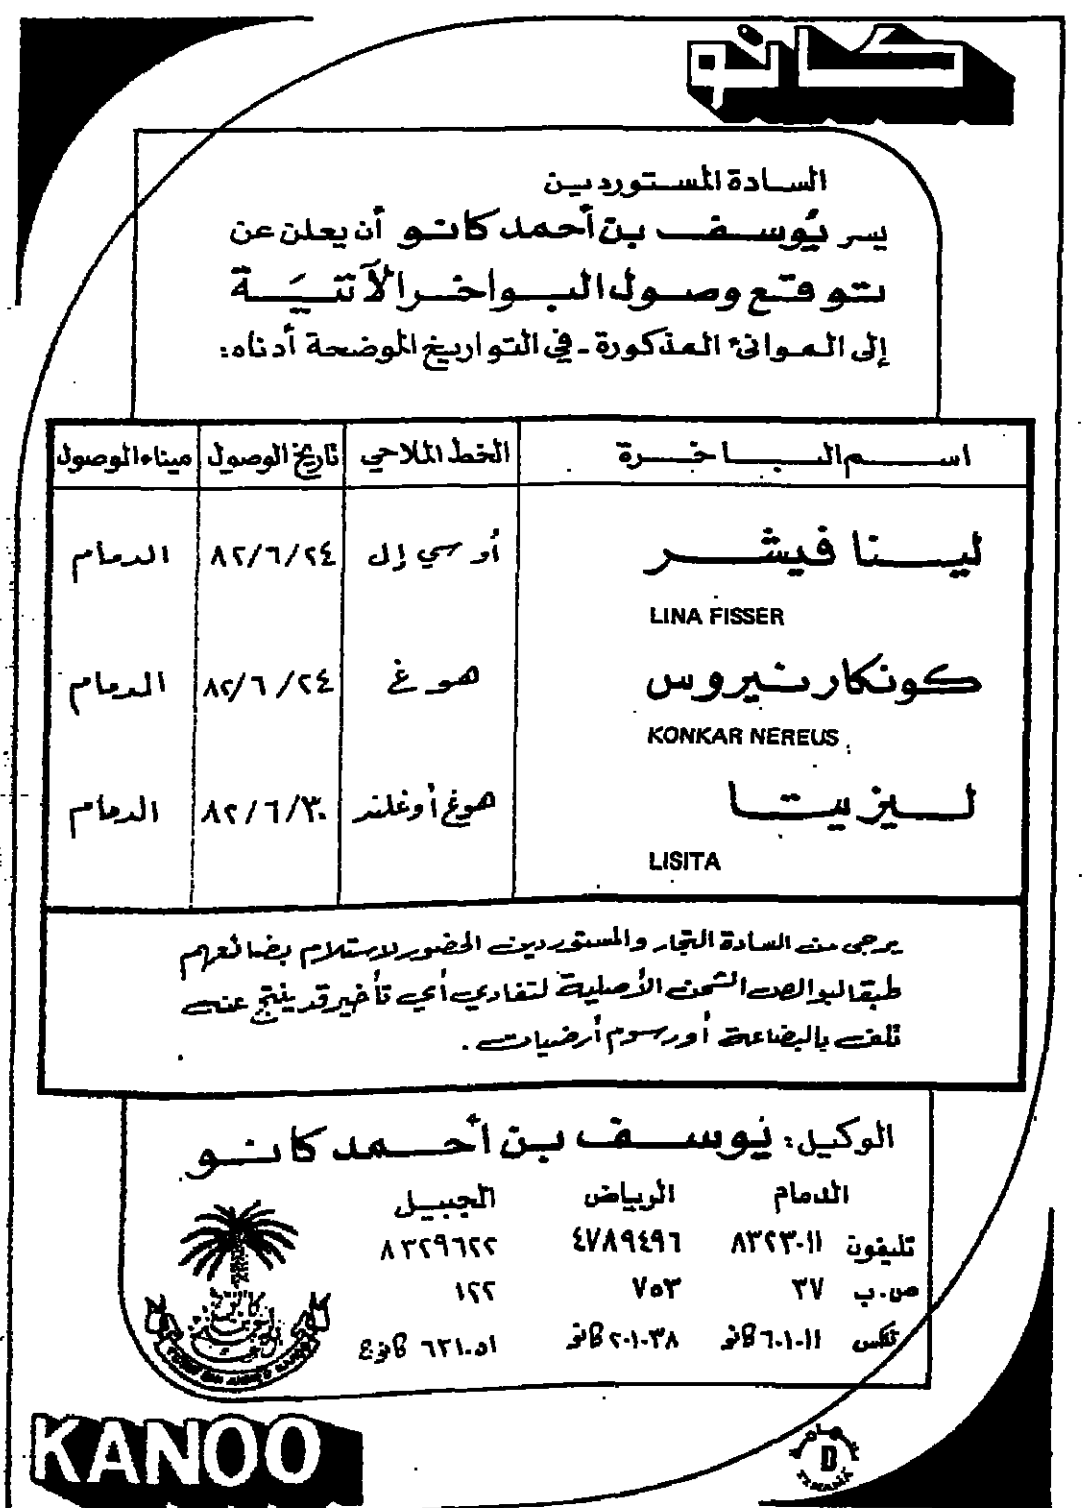 كانو
السادة المستوردين
يسر يوسف بن أحمد كانو أن يعلن عن
توقع وصول البواخر الآتية
إلى الموانئ المذكورة - في التواريخ الموضحة أدناه:
اسم الباخرة الخط الملاحي تاريخ الوصول ميناء الوصول
لينا فيشر أو سي إل ٨٢/٦/٢٤ الدمام
LINA FISSER
كونكار نيروس هوغ ٨٢/٦/٢٤ الدمام
KONKAR NEREUS
ليزيتا هوغ أوغلند ٨٢/٦/٣٠ الدمام
LISITA
يرجى من السادة التجار والمستوردين الحضور لاستلام بضائعهم
طبقا لبوالص الشحن الأصلية لتفادي أي تأخير قد ينتج عنه
تلف بالبضاعة أو رسوم أرضيات .
الوكيل: يوسف بن أحمد كانو
الدمام الرياض الجبيل
تليفون ٨٣٢٣٠١١ ٤٧٨٩٤٩٦ ٨٣٢٩٦٢٢
ص.ب ٣٧ ٧٥٣ ١٢٢
تلكس ٦٠١٠١١ كانو ٢٠١٠٣٨ كانو ٦٣١٠٥١ كانو
YUSUF BIN AHMED KANOO
KANOO
تهامة
D
TIHAMA